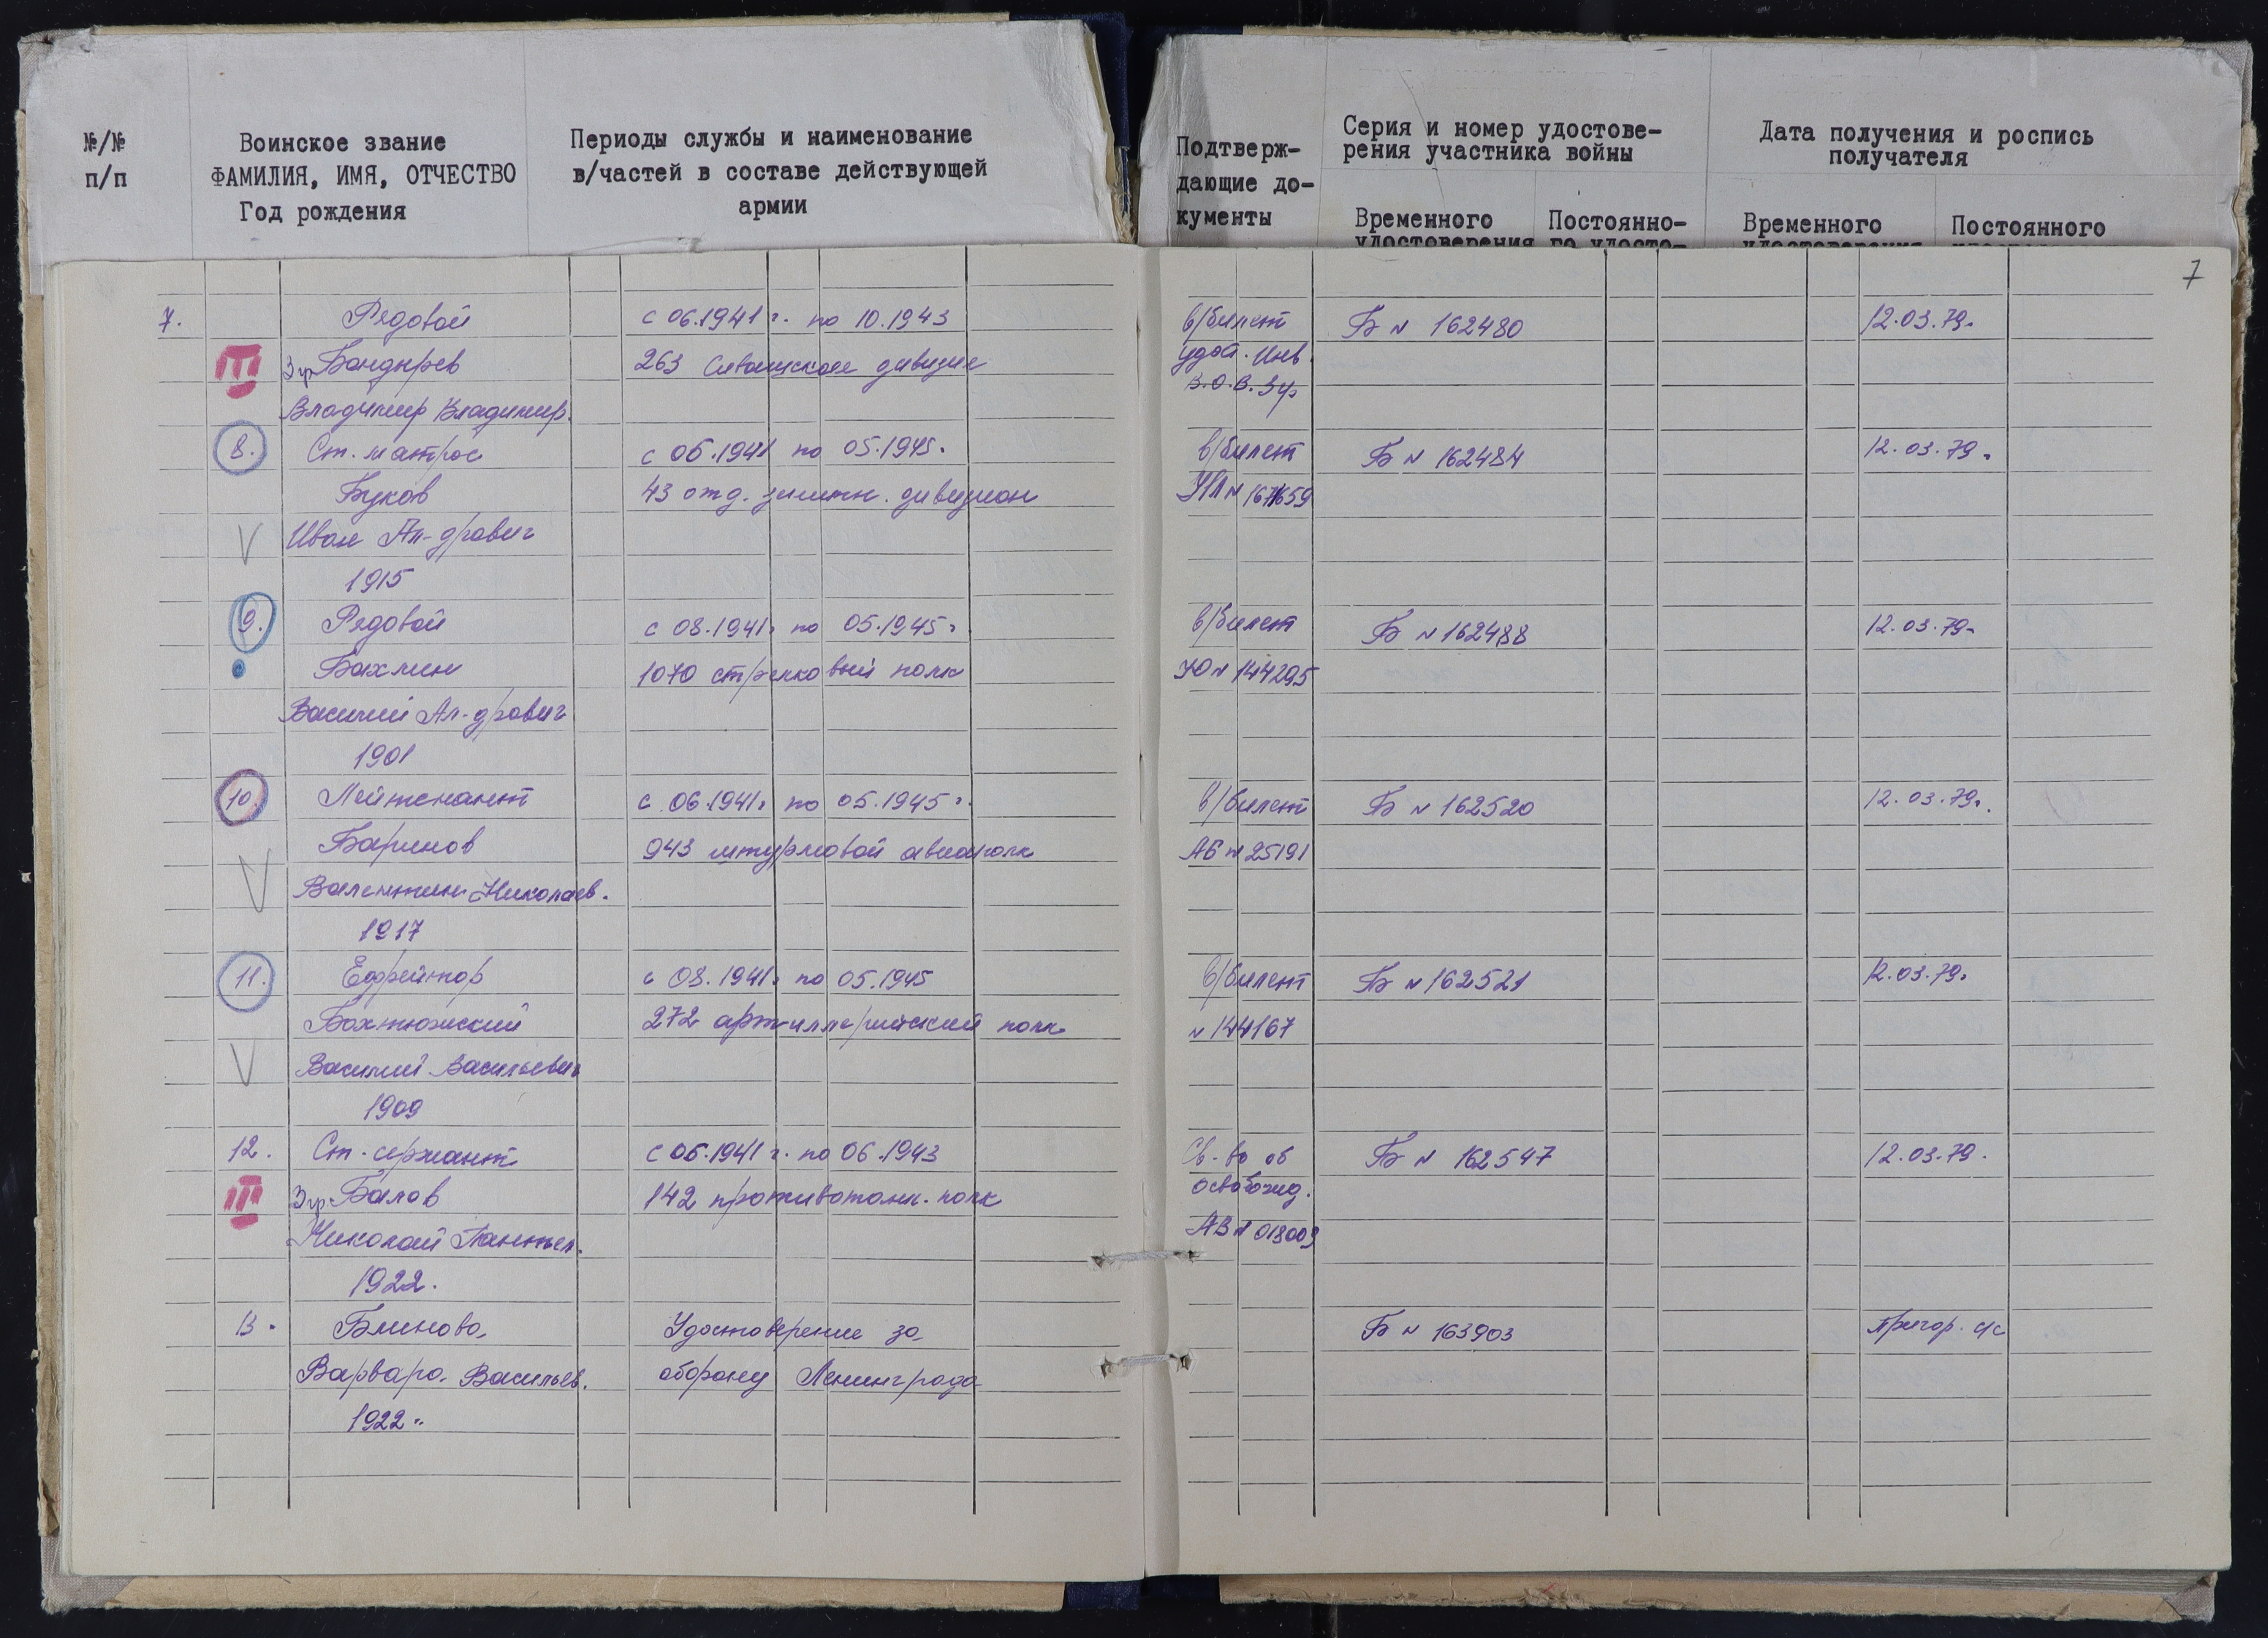 №/№
п/п
Воинское звание
ФАМИЛИЯ, ИМЯ, ОТЧЕСТВО
Год рождения
Периоды службы и наименование
в/частей в составе действующей
армии
Подтверж-
дающие до-
кументы
Серия и номер удостове-
рения участника войны
Временного
удостоверения
Постоянно-
го удосто-
Дата получения и роспись
получателя
Временного
Постоянного
7
7. Рядовой с 06.1941 г. по 10.1943 в/билет Б № 162480 12.03.79.
III 3 гр Бондырев 263 Сивашская дивизия удост. Инв.
В.О.В. 3 гр
Владимир Владимир.
8. Ст. матрос с 06.1941 по 05.1945. в/билет Б № 162484 12.03.79.
Буков 43 отд. зенитн. дивизион
Иван Ал-дрович
1915
9. Рядовой с 08.1941г по 05.1945г в/билет Б № 162488 12.03.79.
Бахмин 1070 стрелковый полк № 144295
Василий Ал-дрович
1901
10. Лейтенант с 06.1941г по 05.1945г. в/билет Б № 162520 12.03.79.
Баринов 943 штурмовой авиаполк АБ № 25191
Валентин Николаев.
1917
11. Ефрейтор с 08.1941г по 05.1945 в/билет Б № 162521 12.03.79.
Бохтюжский 272 артиллерийский полк № 144167
Василий Васильевич
1909
12. Ст. сержант с 06.1941 г. по 06.1943 Св-во об Б № 162547 12.03.79.
III 3 гр. Балов 142 противотанк. полк освобожд.
Николай Пантел. АВ № 018009
1922.
13. Блинова Удостоверение за Б № 163903 Пригор. с/с
Варвара Васильев. оборону Ленинграда
1922